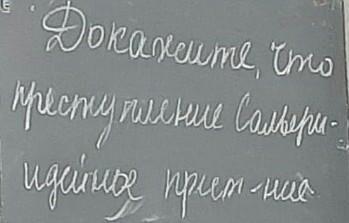 Докажите, что
преступление Сальери-
идейное прест-ние